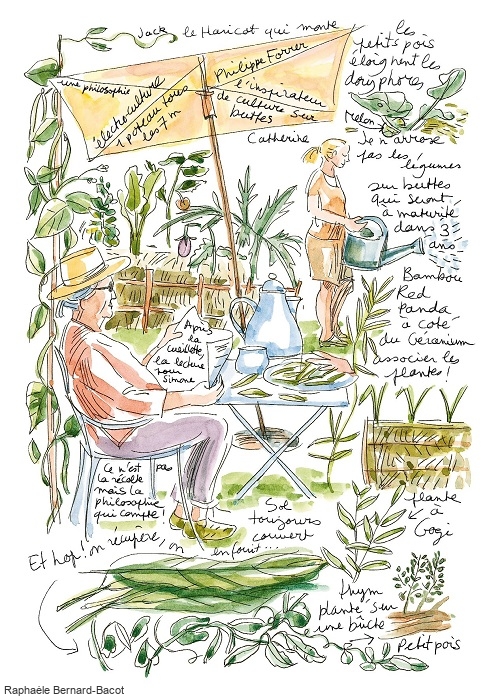 Jack le Haricot qui monte
une philosophie
électroculture
1 poteau tous
les 7 m
Philippe Forrer
l'inspirateur
de culture sur
buttes
les
petits pois
éloignent les
doryphores
Melon
Catherine
Je n'arrose
pas les
légumes
sur buttes
qui seront
à maturité
dans 3
ans
Bambou
Red
Panda
à coté
du Géranium
associer les
plantes !
Après
la
cueillette
la lecture
pour
Simone
Ce n'est pas
la récolte
mais la
philosophie
qui compte !
Sol
toujours
couvert
plante
à
Gogi
Et hop ! on récupère, on enfouit...
thym
planté sur
une bûche
Petit pois
Raphaèle Bernard-Bacot